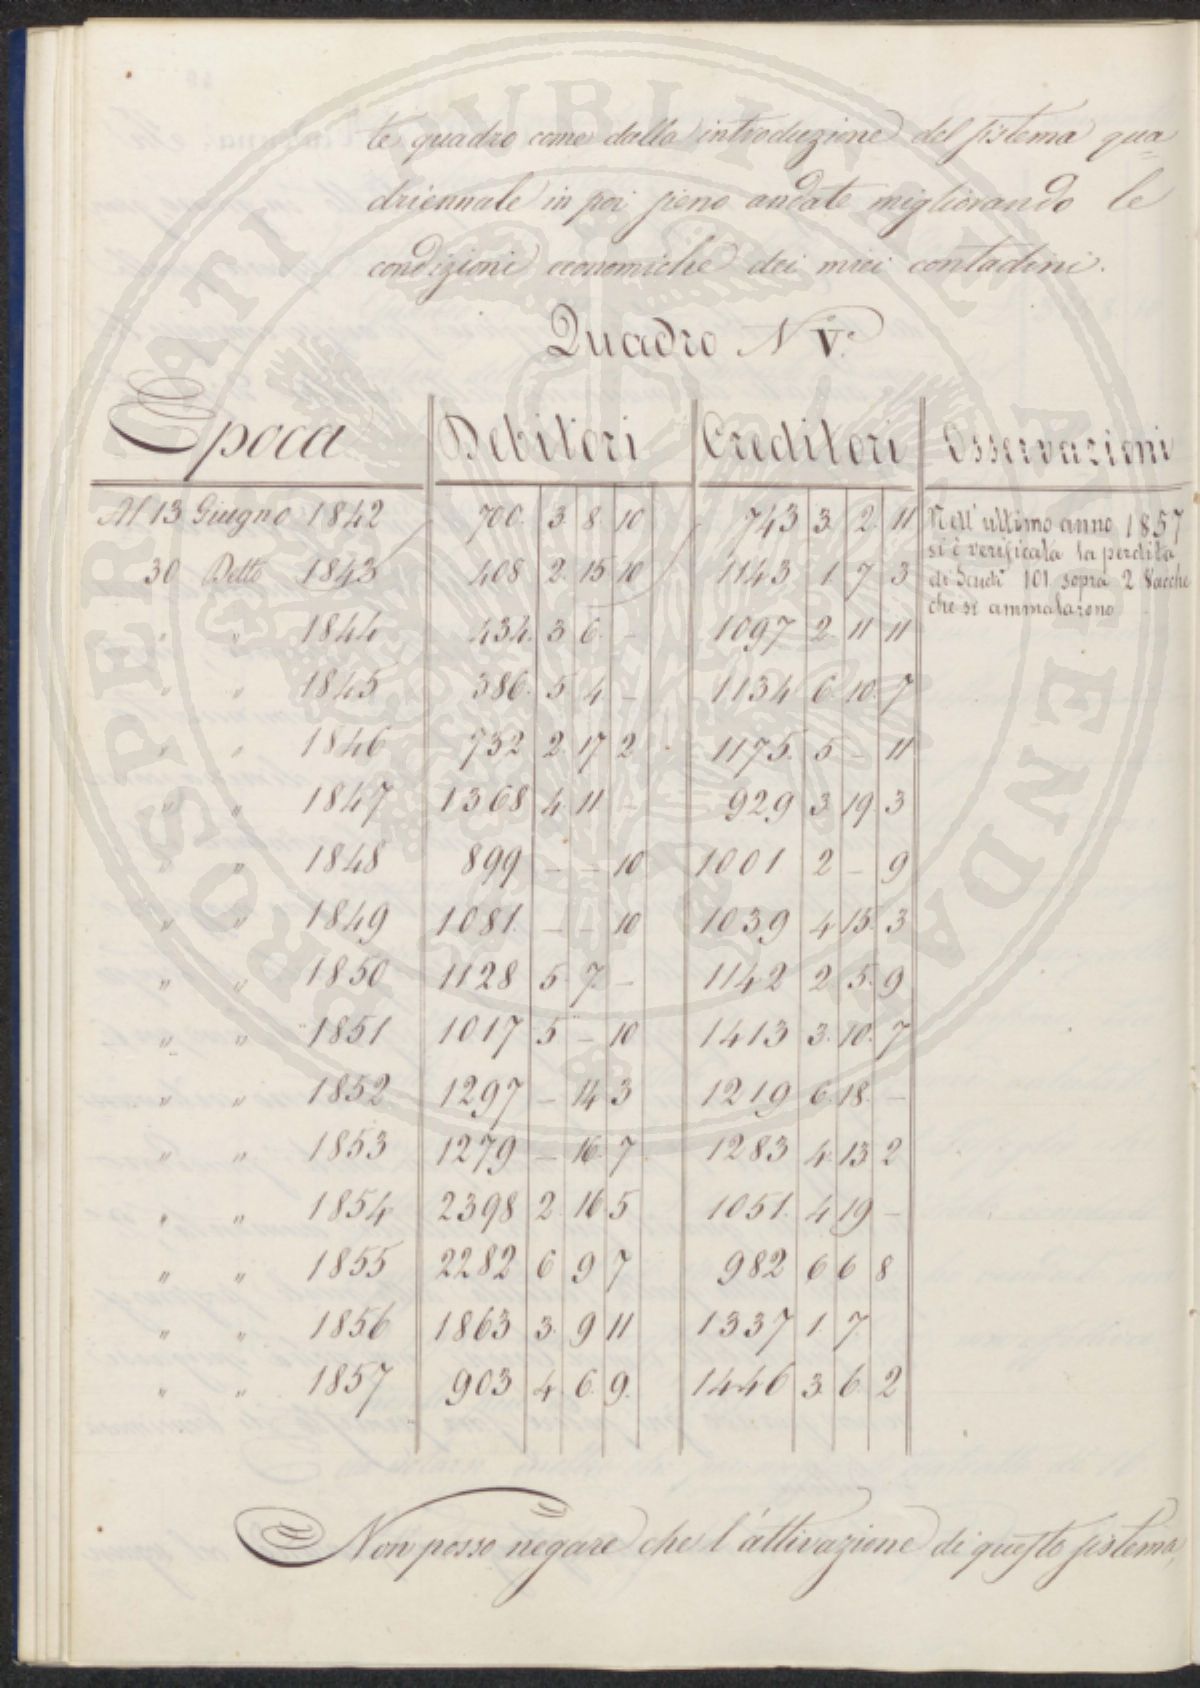 te quadro come dalla introduzione del sistema qua=
driennale in poi sieno andate migliorando le
condizioni economiche dei miei contadini.
Quadro N V.°
Epoca Debitori Creditori Osservazioni
Al 13 Giugno 1842 700. 3. 8. 10 743 3. 2. 11 Nell'ultimo anno 1857
si è verificata la perdita
30 Detto 1843 408 2. 15 10 1143 1. 7 3 di Scudi 101 sopra 2 Vacche
che si ammalarono
" " 1844 434. 3 6. – 1097 2. 11 11
" " 1845 386. 5 4. – 1134 6. 10. 7
" " 1846 732 2. 17 2 1175. 5 – 11
" " 1847 1368 4. 11 – 929 3. 19. 3
" " 1848 899 – – 10 1001 2 – 9
" " 1849 1081. – – 10 1039 4 15. 3
" " 1850 1128 5. 7. – 1142 2 5. 9
" " 1851 1017 5 – 10 1413 3. 10. 7
" " 1852 1297 – 14 3 1219 6. 18. –
" " 1853 1279 – 16. 7 1283 4. 13 2
" " 1854 2398 2. 16 5 1051. 4 19 –
" " 1855 2282 6 9 7 982 6 6 8
" " 1856 1863 3. 9 11 1337 1. 7.
" " 1857 903 4. 6. 9. 1446 3. 6. 2
Non posso negare che l'attivazione di questo sistema,
PROSPERITATI PUBLICAE AUGENDAE